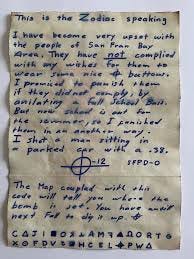 This is the Zodiac speaking
I have become very upset with
the people of San Fran Bay
Area. They have not complied
with my wishes for them to
wear some nice ⌖ buttons.
I promised to punish them
if they did not comply by
anilating a full School Buss.
But now school is out for
the summer, so I punished
them in an another way.
I shot a man sitting in a
parked car with a .38.
⌖-12 SFPD-0
The Map coupled with this
code will tell you where the
bomb is set. You have untill
next Fall to dig it up. ⌖
C Δ J I ■ O ⅄ A M ꟻ ▲ O R T G
X O F D V ꓭ ■ H C E L ⌖ P W Δ